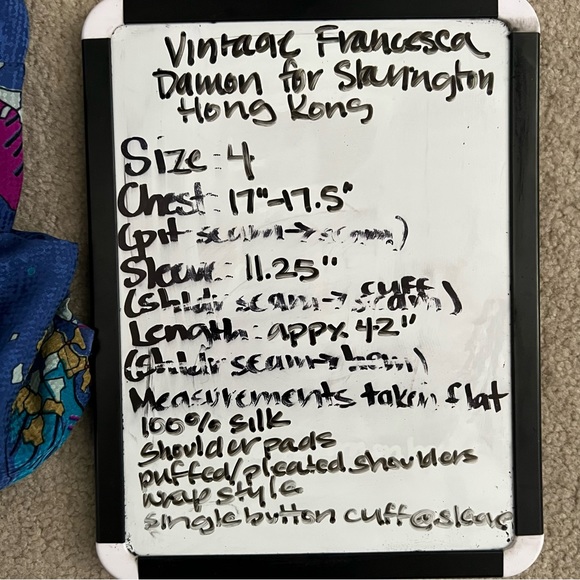 Vintage Francesca
Damon for Starington
Hong Kong
Size: 4
Chest: 17"-17.5"
(pit seam→seam)
Sleeve: 11.25"
(shldr seam→cuff seam)
Length: appx. 42"
(shldr seam→hem)
Measurements taken flat
100% silk
Shoulder pads
puffed/pleated shoulders
wrap style
single button cuff @ sleeve